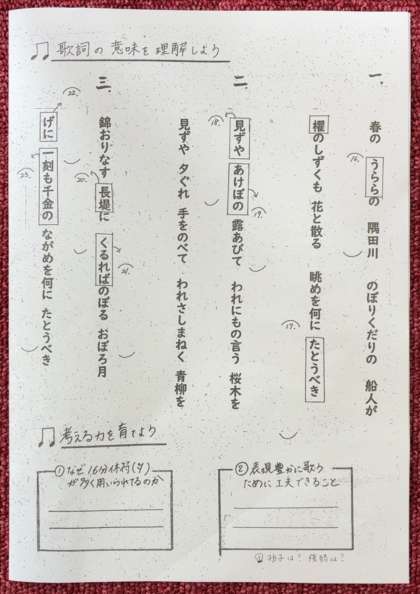 ♫ 歌詞の意味を理解しよう
一、
春の うららの 隅田川 のぼりくだりの 船人が
16.
櫂のしずくも 花と散る 眺めを何に たとうべき
17.
二、
見ずや あけぼの 露あびて われにもの言う 桜木を
18.
19.
見ずや 夕ぐれ 手をのべて われさしまねく 青柳を
三、
錦おりなす 長堤に くるればのぼる おぼろ月
20.
21.
げに 一刻も千金の ながめを何に たとうべき
22.
23.
♫ 考える力を育てよう
①なぜ16分休符(𝄿)
が多く用いられてるのか
②表現豊かに歌う
ために工夫できること
拍子は?